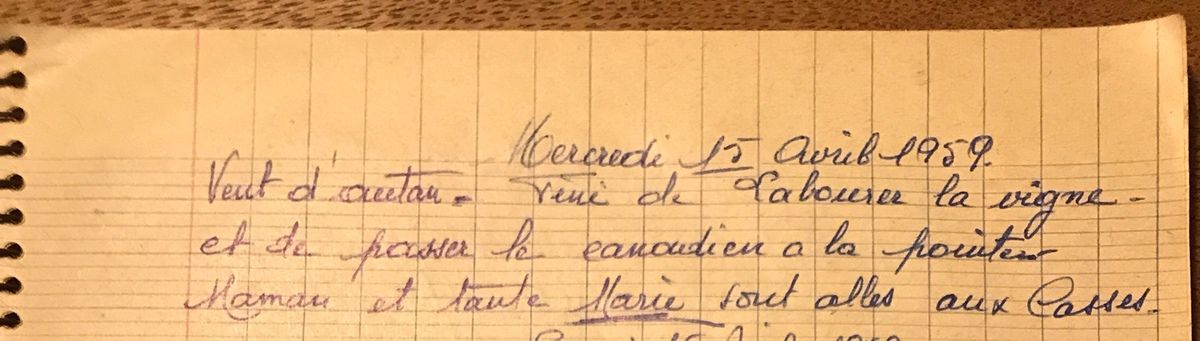 Mercredi 15 Avril 1959.
Vent d'autan - Fini de Labourer la vigne -
et de passer le canadien a la pointe
Maman et tante Marie sont alles aux Casses.